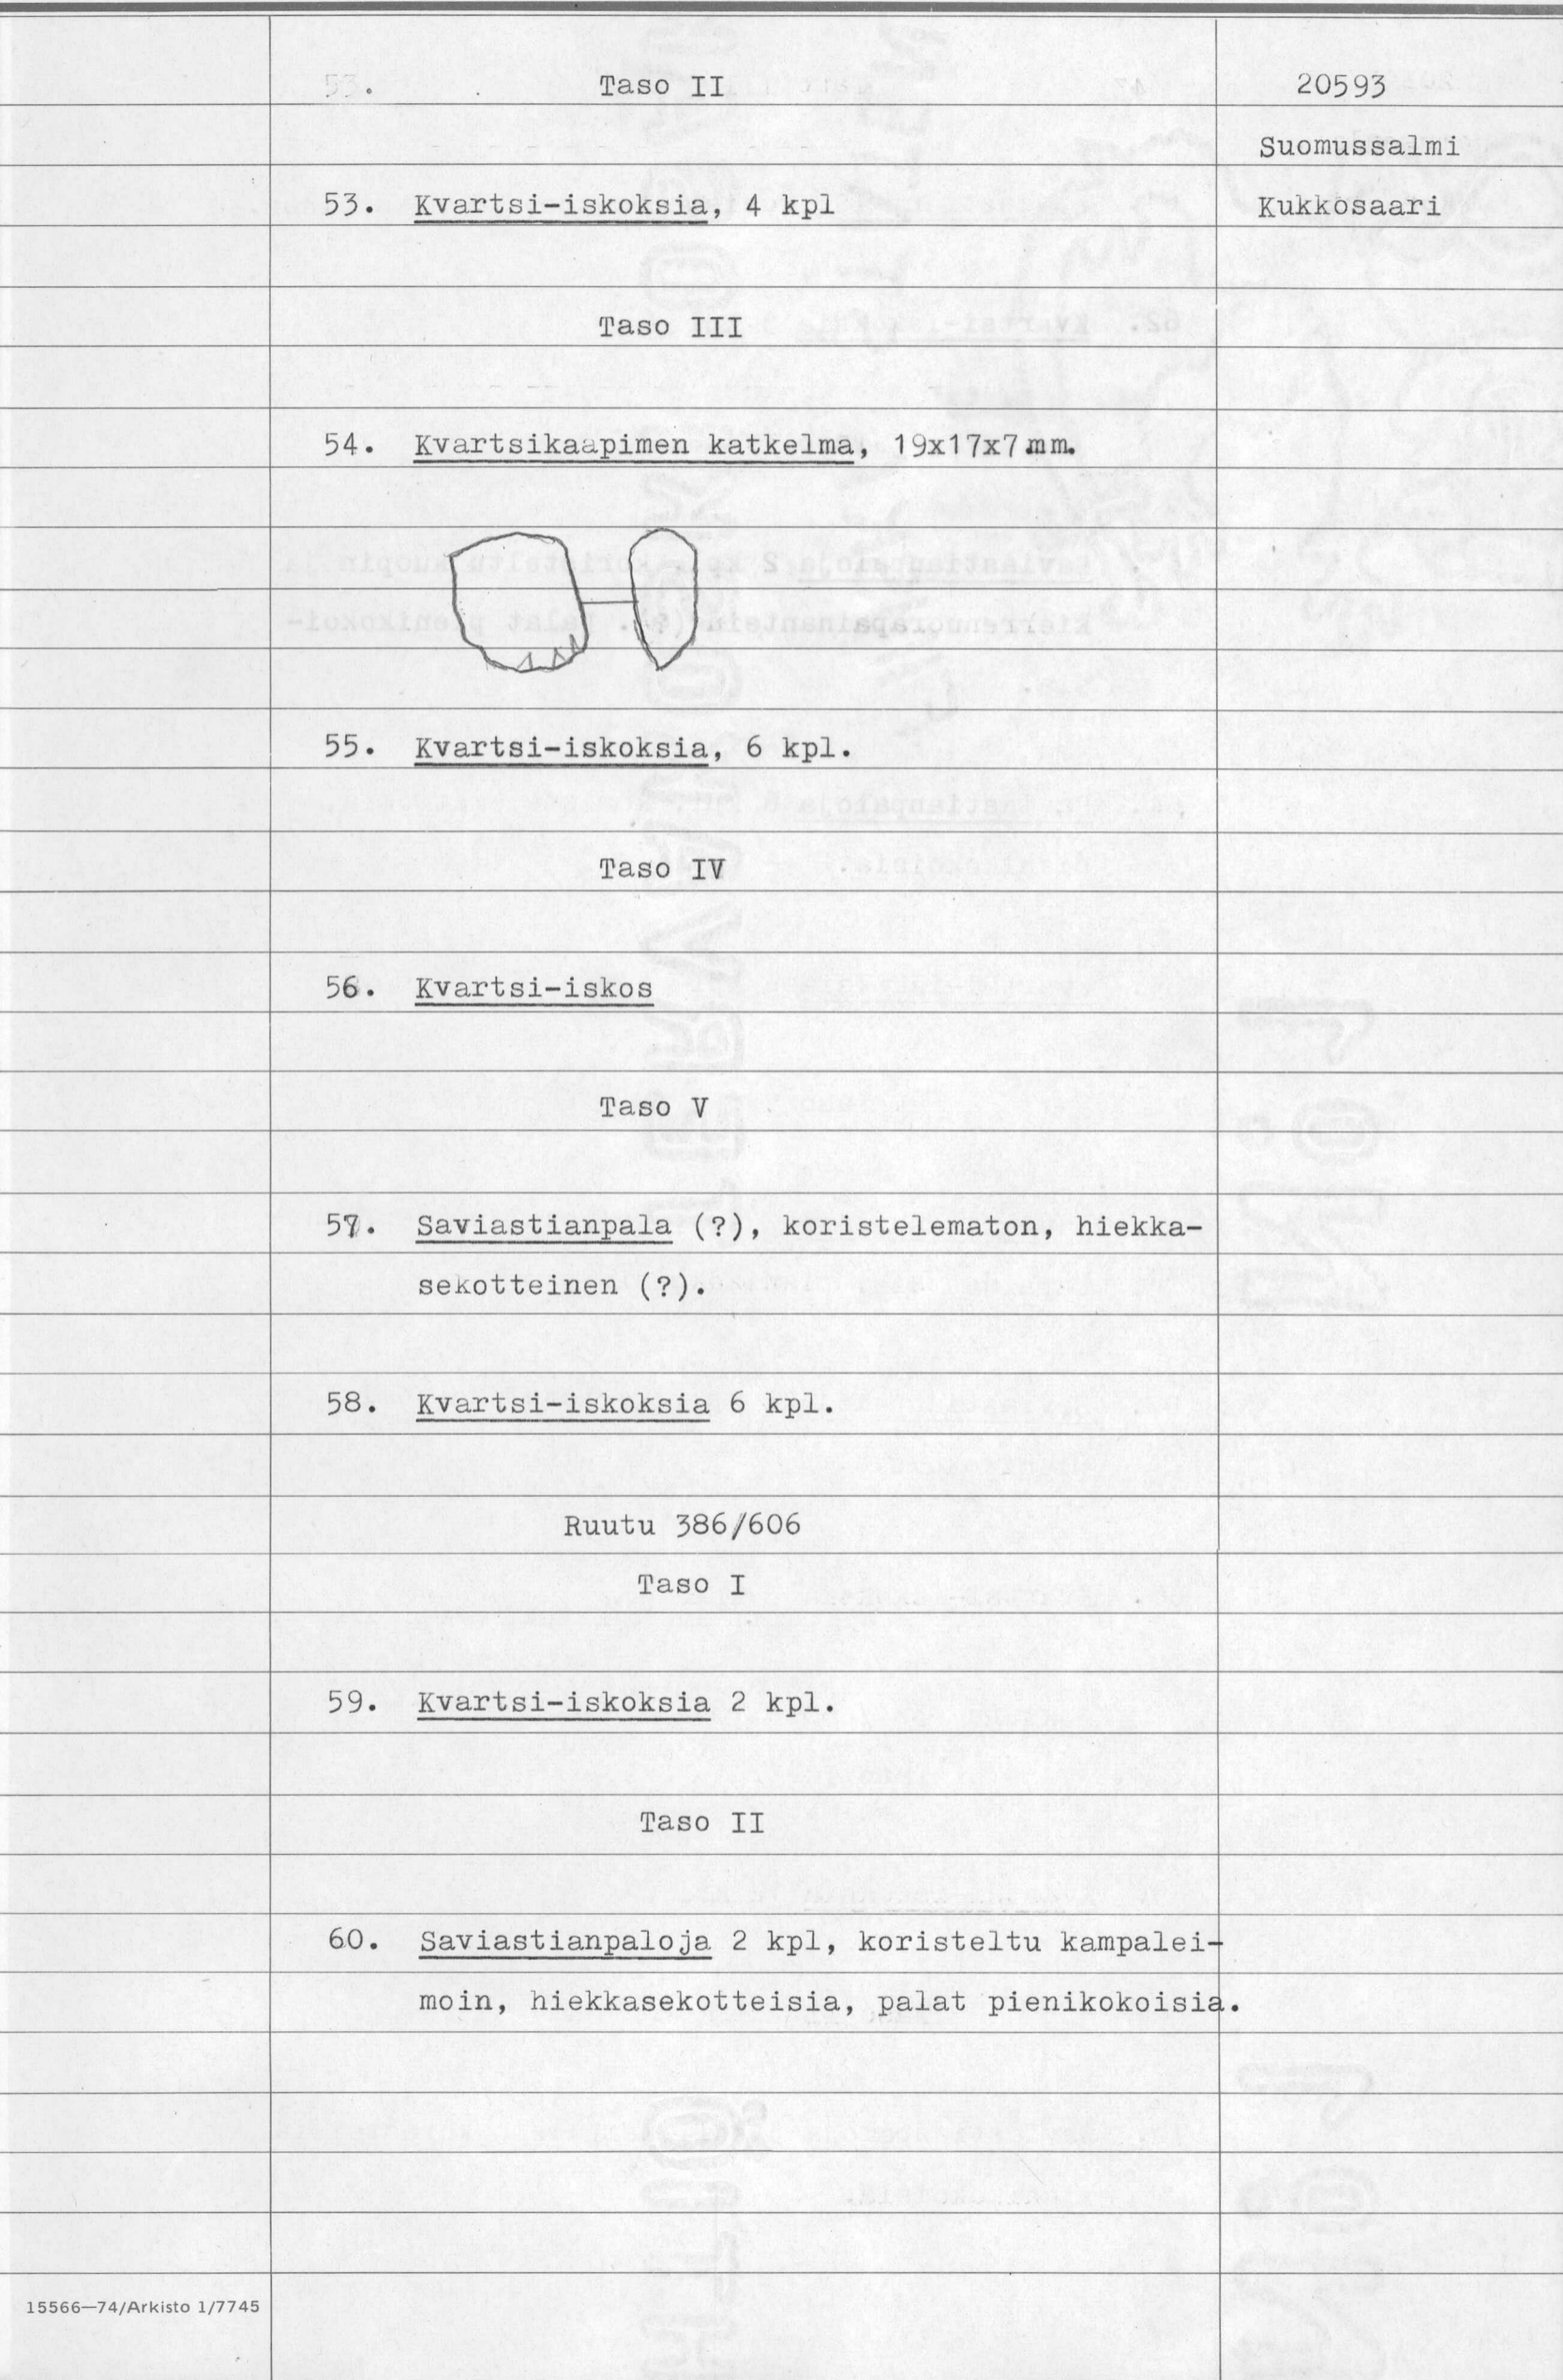 Taso II
20593
Suomussalmi
53. Kvartsi-iskoksia, 4 kpl
Kukkosaari
Taso III
54. Kvartsikaapimen katkelma, 19x17x7 mm.
55. Kvartsi-iskoksia, 6 kpl.
Taso IV
56. Kvartsi-iskos
Taso V
57. Saviastianpala (?), koristelematon, hiekka-
sekotteinen (?).
58. Kvartsi-iskoksia 6 kpl.
Ruutu 386/606
Taso I
59. Kvartsi-iskoksia 2 kpl.
Taso II
60. Saviastianpaloja 2 kpl, koristeltu kampalei-
moin, hiekkasekotteisia, palat pienikokoisia.
15566—74/Arkisto 1/7745